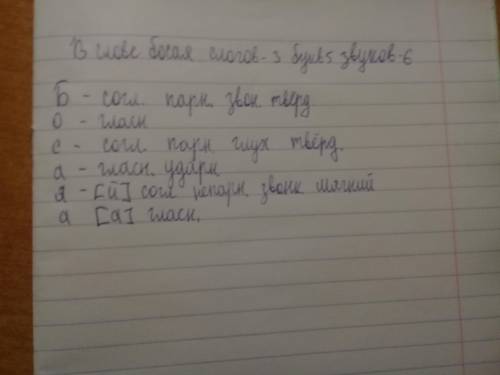 В слове босая слогов-3 букв5 звуков-6
Б - согл. парн. звон. тверд
о - гласн
с - согл. парн глух твёрд.
а - гласн. ударн
я - [й] согл непарн. звонк мягкий
а [а] гласн.